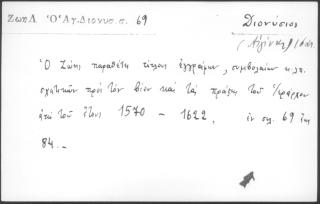 Ζωπ Λ Ὁ Ἁγ. Διονυσ. σ. 69
Διονύσιος
Ὁ Ζώης παραθέτει τίτλους ἐγγράφων, συμβολαίων κ.λπ.
σχετικῶν πρὸς τὸν βίον καὶ τὰς πράξεις τοῦ
ἀπὸ τοῦ ἔτους 1570 - 1622, ἐν σελ. 69 ἕως
84.-